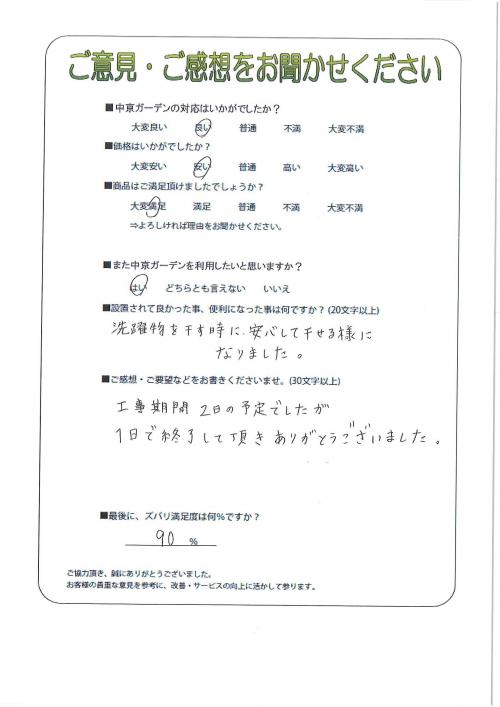 ご意見・ご感想をお聞かせください
■中京ガーデンの対応はいかがでしたか？
大変良い 良い 普通 不満 大変不満
■価格はいかがでしたか？
大変安い 安い 普通 高い 大変高い
■商品はご満足頂けましたでしょうか？
大変満足 満足 普通 不満 大変不満
⇒よろしければ理由をお聞かせください。
■また中京ガーデンを利用したいと思いますか？
はい どちらとも言えない いいえ
■設置されて良かった事、便利になった事は何ですか？(20文字以上)
洗躍物を干す時に、安心して干せる様に
なりました。
■ご感想・ご要望などをお書きくださいませ。(30文字以上)
工事期間 2日の予定でしたが
1日で終了して頂きありがとうございました。
■最後に、ズバリ満足度は何％ですか？
90 %
ご協力頂き、誠にありがとうございました。
お客様の貴重な意見を参考に、改善・サービスの向上に活かして参ります。